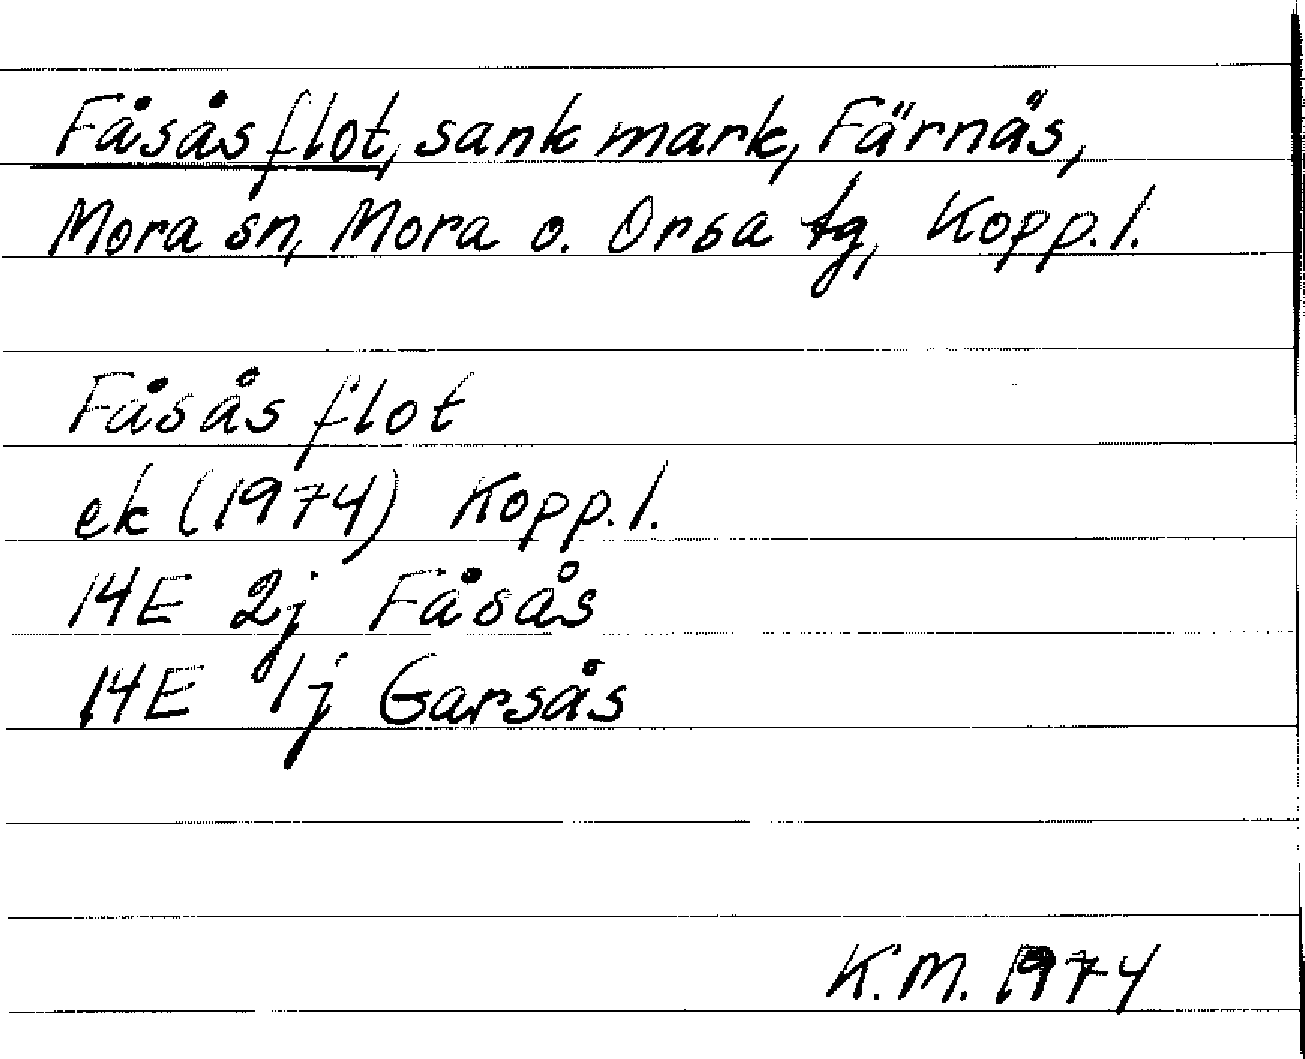 Fåsås flot, sank mark, Färnäs,
Mora sn, Mora o. Orsa tg, Kopp. l.
Fåsås flot
ek (1974) Kopp. l.
14E 2j Fåsås
14E 1j Garsås
K.M. 1974